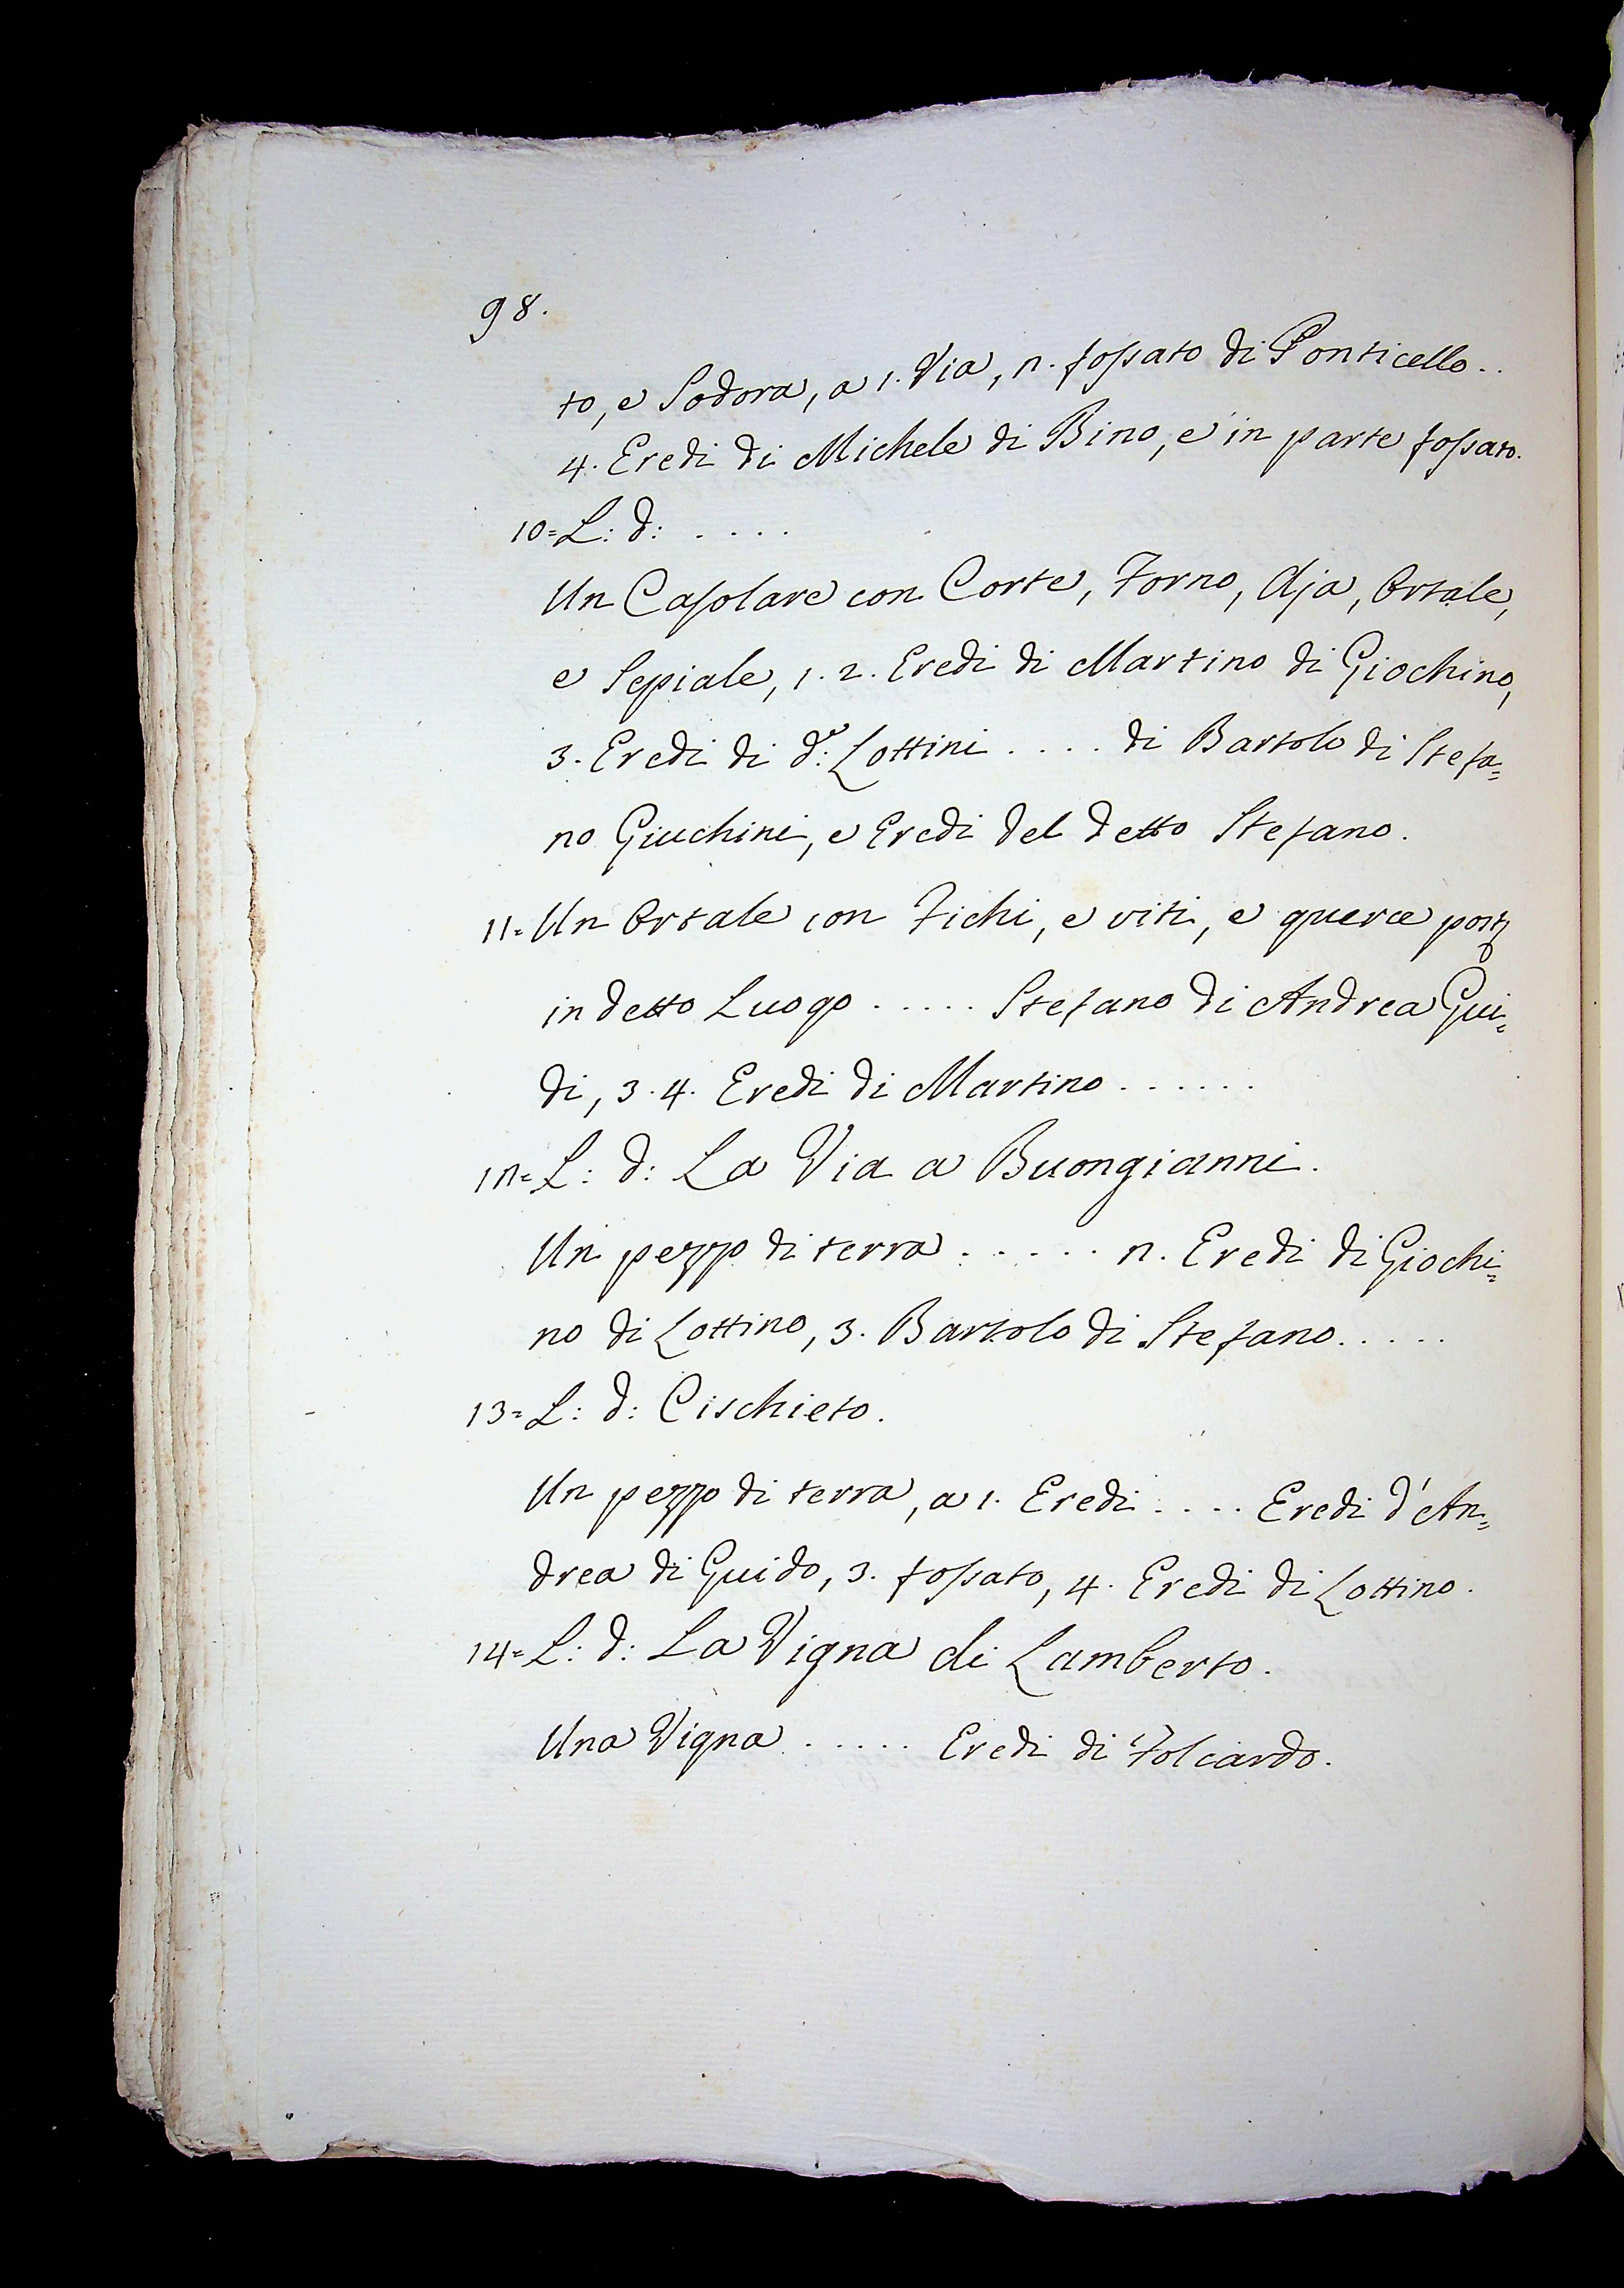 98.
to, e Sodora, a 1. Via, 2. fossato di Ponticello..
4. Eredi di Michele di Bino, e in parte fossato.
10= L: d: ....
Un Casolare con Corte, Forno, Aja, Ortale,
e Sepiale, 1. 2. Eredi di Martino di Giochino,
3. Eredi di d.º Lottini .... di Bartolo di Stefa=
no Giuchini, e Eredi del detto Stefano.
11= Un Ortale con Fichi, e viti, e querce
in detto Luogo ..... Stefano di Andrea Gui=
di, 3. 4. Eredi di Martino ......
12= L: d: La Via a Buongianni.
Un pezzo di terra ..... 2. Eredi di Giochi=
no di Lottino, 3. Bartolo di Stefano .....
13= L: d: Cischieto.
Un pezzo di terra, a 1. Eredi .... Eredi d'An=
drea di Guido, 3. fossato, 4. Eredi di Lottino.
14= L: d: La Vigna di Lamberto.
Una Vigna ..... Eredi di Folcardo.